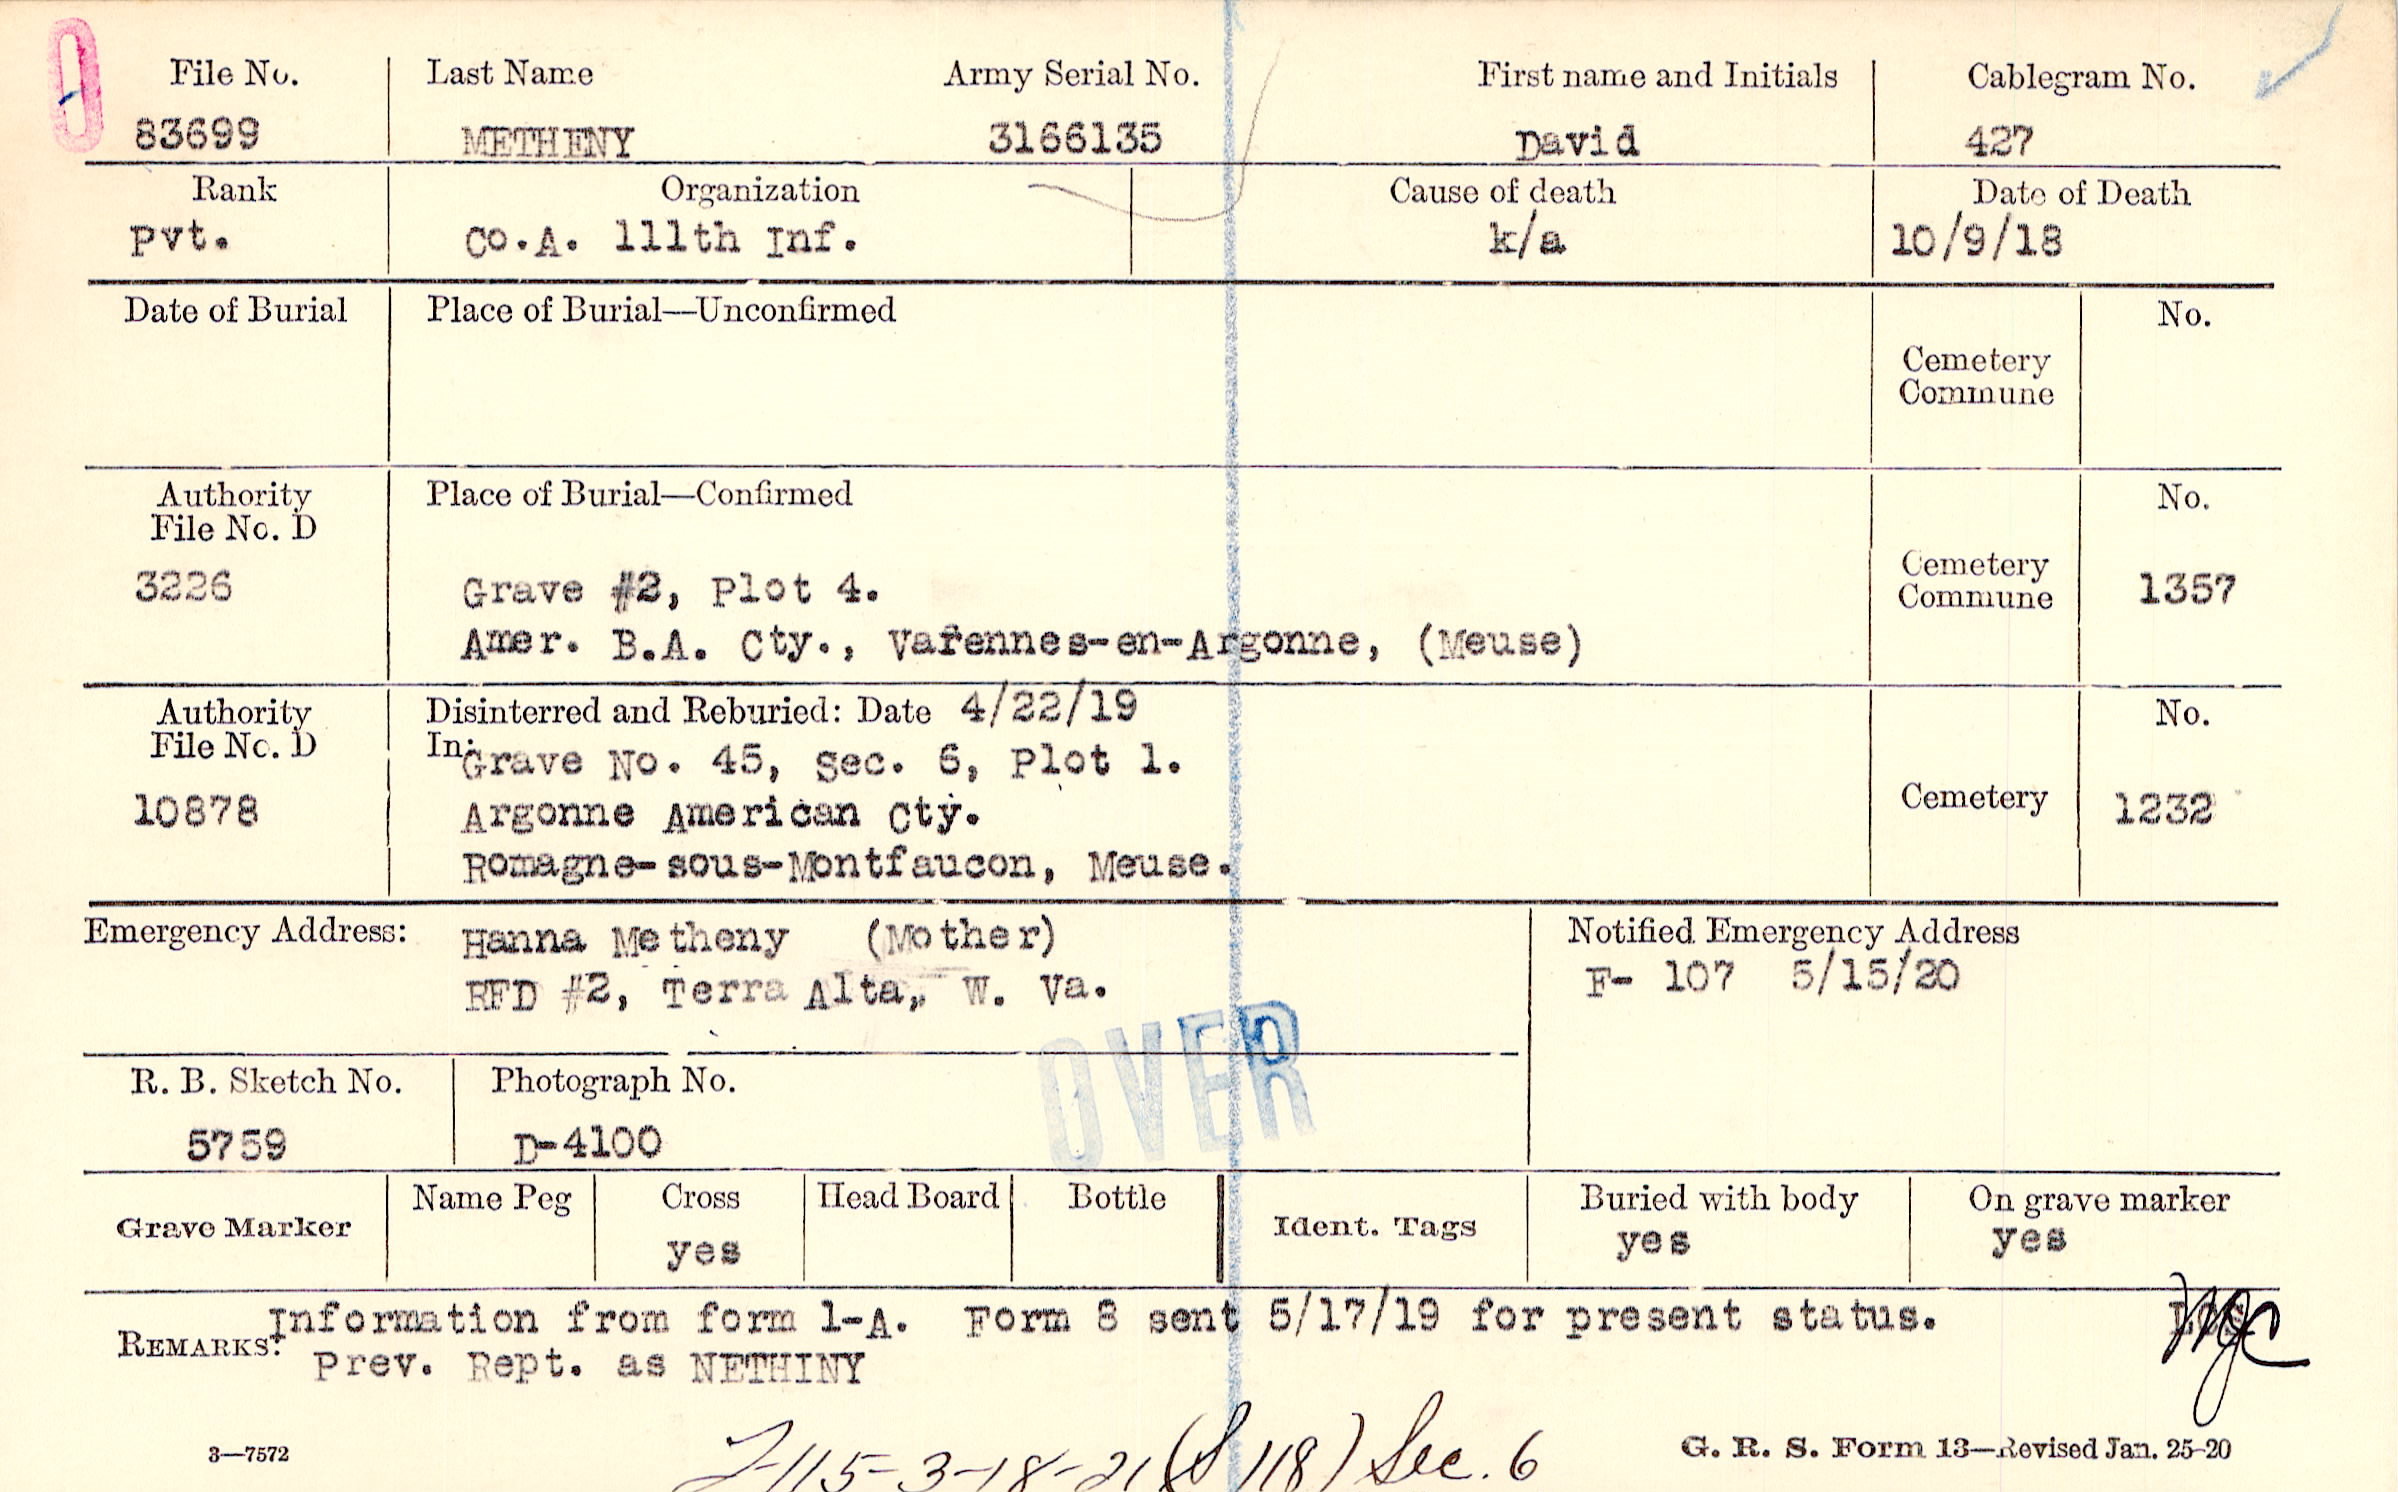 File No. Last Name Army Serial No. First name and Initials Cablegram No.
83699 METHENY 3166135 David 427
Rank Organization Cause of death Date of Death
Pvt. Co.A. 111th Inf. k/a 10/9/18
Date of Burial Place of Burial—Unconfirmed No.
Cemetery
Commune
Authority Place of Burial—Confirmed No.
File No. D
Cemetery
Commune
3226 Grave #2, Plot 4. 1357
Amer. B.A. Cty., Varennes-en-Argonne, (Meuse)
Authority Disinterred and Reburied: Date 4/22/19 No.
File No. D In: Grave No. 45, Sec. 6, Plot 1.
10878 Argonne American Cty. Cemetery 1232
Romagne-sous-Montfaucon, Meuse.
Emergency Address: Hanna Metheny (Mother) Notified Emergency Address
RFD #2, Terra Alta, W. Va. F- 107 5/15/20
OVER
R. B. Sketch No. Photograph No.
5759 D-4100
Grave Marker Name Peg Cross Head Board Bottle Ident. Tags Buried with body On grave marker
yes yes yes
REMARKS: Information from form 1-A. Form 8 sent 5/17/19 for present status.
Prev. Rept. as NETHINY
3—7572 G. R. S. Form 13—Revised Jan. 25-20
-115-3-18-21 (S 118) Sec. 6